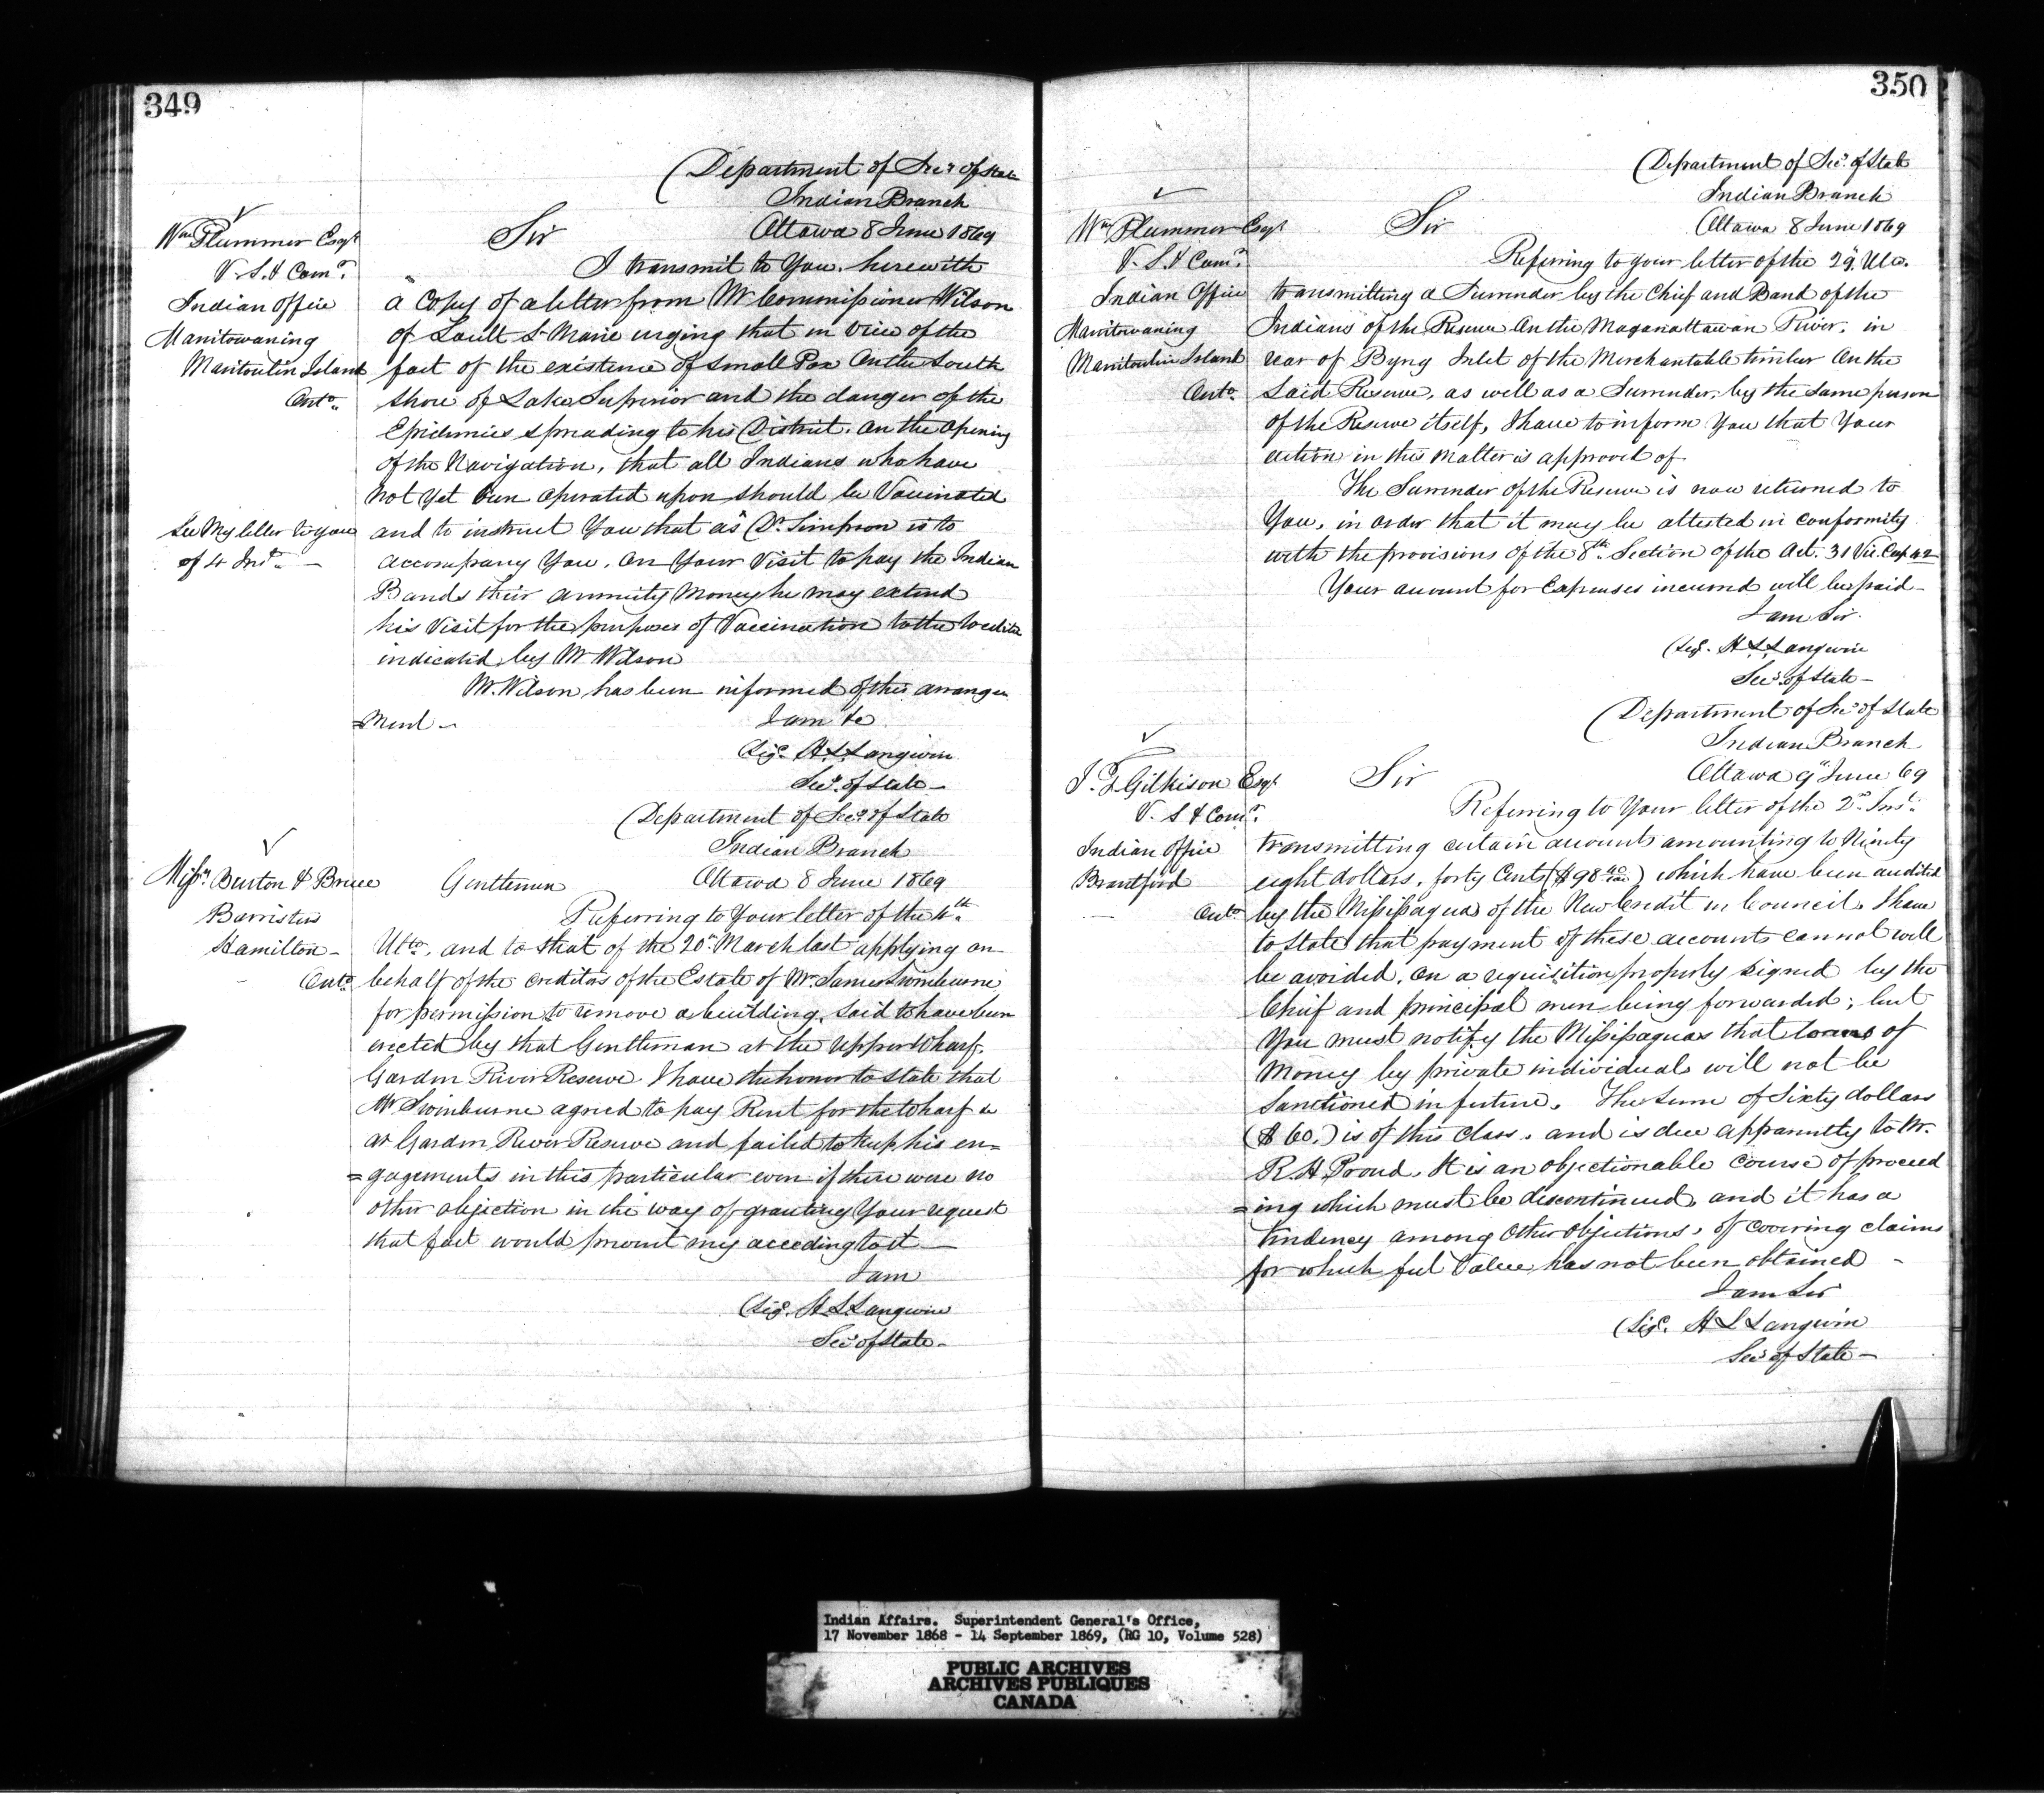 349
Department of Secy of State
Indian Branch
Ottawa 8 June 1869
Wm Plummer Esqr
V. S. & Comr
Indian Office
Manitowaning
Manitoulin Island
Onto
Sir
I transmit to You herewith
a Copy of a letter from Mr Commissioner Wilson
of Sault St Marie urging that in view of the
fact of the existence of Small Pox on the South
Shore of Lake Superior and the danger of the
Epidemics spreading to his District on the opening
of the Navigation, that all Indians who have
not yet been operated upon should be Vaccinated
See My letter to you
of 4 Inst. —
and to instruct You that as Dr Simpson is to
accompany You, on Your Visit to pay the Indian
Bands their annuity Money he may extend
his Visit for the purposes of Vaccination to the localities
indicated by Mr Wilson
Mr. Wilson has been informed of this arrange
=ment —
I am &c
(Sigd. H L Langevin
Secy. of State —
Department of Secy of State
Indian Branch
Ottawa 8 June 1869
Messrs Burton & Bruce
Barristers
Hamilton —
Onto
Gentlemen
Referring to Your letter of the 4th
Ulto, and to that of the 20th March last applying on
behalf of the creditors of the Estate of Mr. James Swinburne
for permission to remove a building, said to have been
erected by that Gentleman at the upper Wharf,
Garden River Reserve I have the honor to state that
Mr Swinburne agreed to pay Rent for the Wharf &c
at Garden River Reserve and failed to keep his en=
=gagements in this particular even if there were no
other objection in the way of granting Your request
that fact would prevent my acceding to it —
I am
(Sigd. H L Langevin
Secy of State —
350
Department of Secy. of State
Indian Branch
Ottawa 8 June 1869
Wm Plummer Esqr
V. S. & Comr
Indian Office
Manitowaning
Manitoulin Island
Onto
Sir
Referring to your letter of the 29 Ulto.
transmitting a Surrender by the Chief and Band of the
Indians of the Reserve on the Maganattawan River, in
rear of Byng Inlet of the Merchantable timber on the
Said Reserve, as well as a Surrender, by the same person
of the Reserve itself, I have to inform You that Your
action in this matter is approved of
The Surrender of the Reserve is now returned to
You, in order that it may be attested in conformity
with the provisions of the 8th Section of the Act. 31 Vic. Cap 42
Your account for Expenses incurred will be paid —
I am Sir
(Sigd. H L Langevin
Secy. of State —
Department of Secy of State
Indian Branch
Ottawa 9 June 69
J. T. Gilkison Esqr
V. S & Comr
Indian Office
Brantford
Onto
Sir
Referring to Your letter of the 2nd Inst.
transmitting certain accounts amounting to Ninety
eight dollars, forty Cents ($98 40/100) which have been audited
by the Missisaguas of the New Credit in Council, I have
to state that payment of these accounts cannot well
be avoided, on a requisition properly signed by the
Chief and principal men being forwarded; but
You must notify the Missisaguas that loans of
Money by private individuals will not be
Sanctioned in future. The Sum of Sixty dollars
($60.) is of this Class, and is due apparently to Mr.
R. H. Proud. It is an objectionable course of proceed
=ing which must be discontinued, and it has a
tendency among Other Objections, of covering claims
for which full Value has not been obtained —
I am Sir
(Sigd. H L Langevin
Secy of State —
Indian Affairs. Superintendent General's Office,
17 November 1868 - 14 September 1869, (RG 10, Volume 528)
PUBLIC ARCHIVES
ARCHIVES PUBLIQUES
CANADA